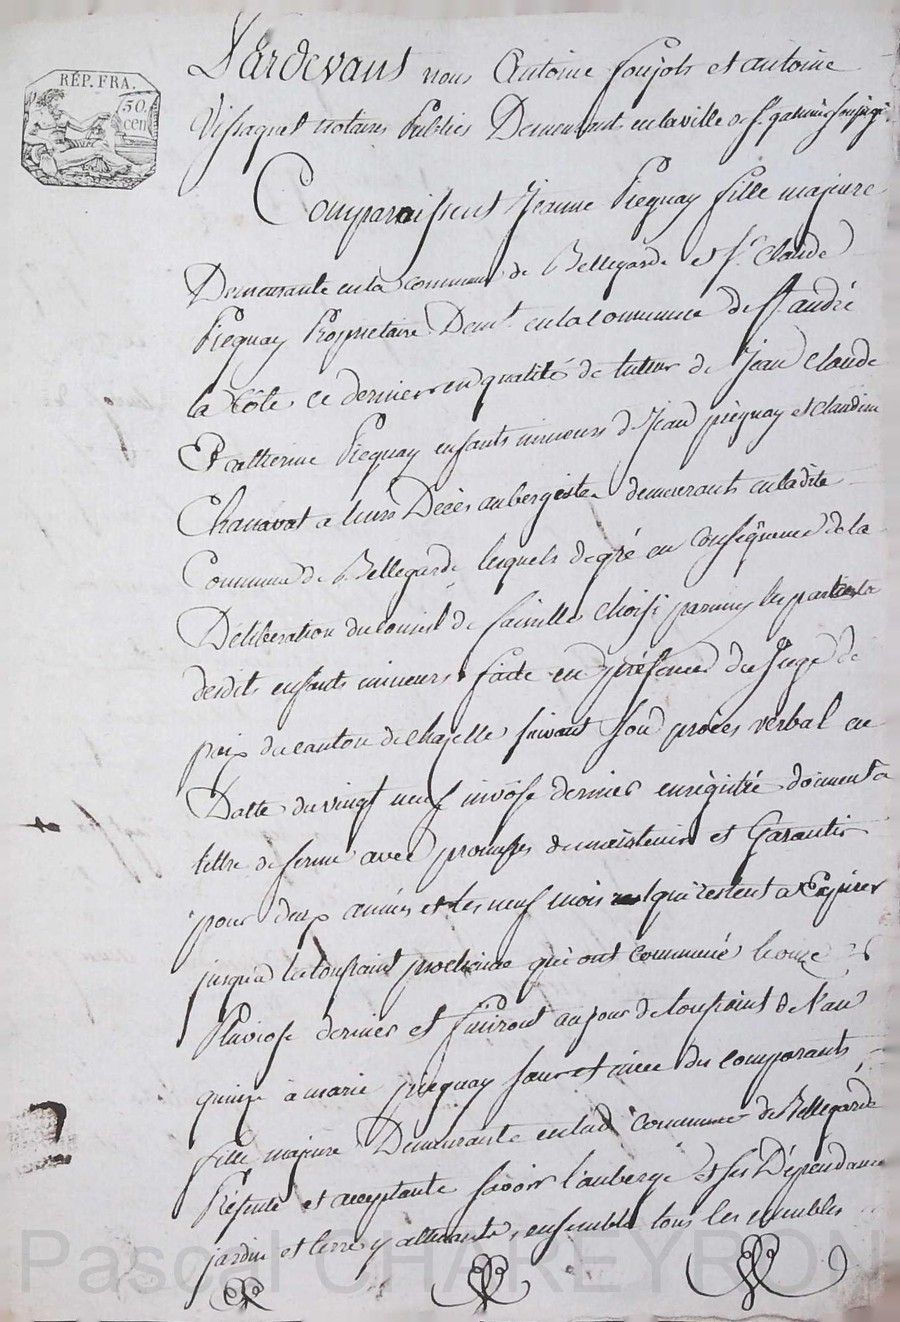 RÉP. FRA.
50.
cen
Pardevant nous Antoine Soujols et antoine
Vissaguet notaires Publics Demeurants en la ville de St. galmier
Comparaissent Jeanne Piegnay fille majeure
Demeurante en la commune de Bellegarde et Sr. Claude
Piegnay Propriétaire Demt. en la commune de St. andré
la Côte, ce dernier en qualité de tuteur de Jean Claude
Et catherine Piegnay enfants mineurs de Jean piegnay et claudine
Chanavat a leurs Décès aubergistes demeurants en ladite
Commune de Bellegarde, lesquels de gré en conséquence de la
Délibération du conseil de famille choisi parmy les
desdits enfants mineurs, faite en présence du Juge de
paix du canton de chazelle suivant son procès verbal en
Datte du vingt neuf nivôse dernier enrégitré donnent a
tittre de ferme avec promesses de maintenir et Garantir
pour deux années et les neuf mois qui restent a Expirer
jusqu'a la toussaint prochaine qui ont commencé le onze
Pluviose dernier et finiront au jour de toussaint de l'an
quinze a marie piegnay sœur et niece des comparants
fille majeure Demeurante en lad. commune de Bellegarde
Présente et acceptante savoir l'auberge et ses Dépendances
jardin et terre y attenante, ensemble tous les meubles
Pascal CHAREYRON